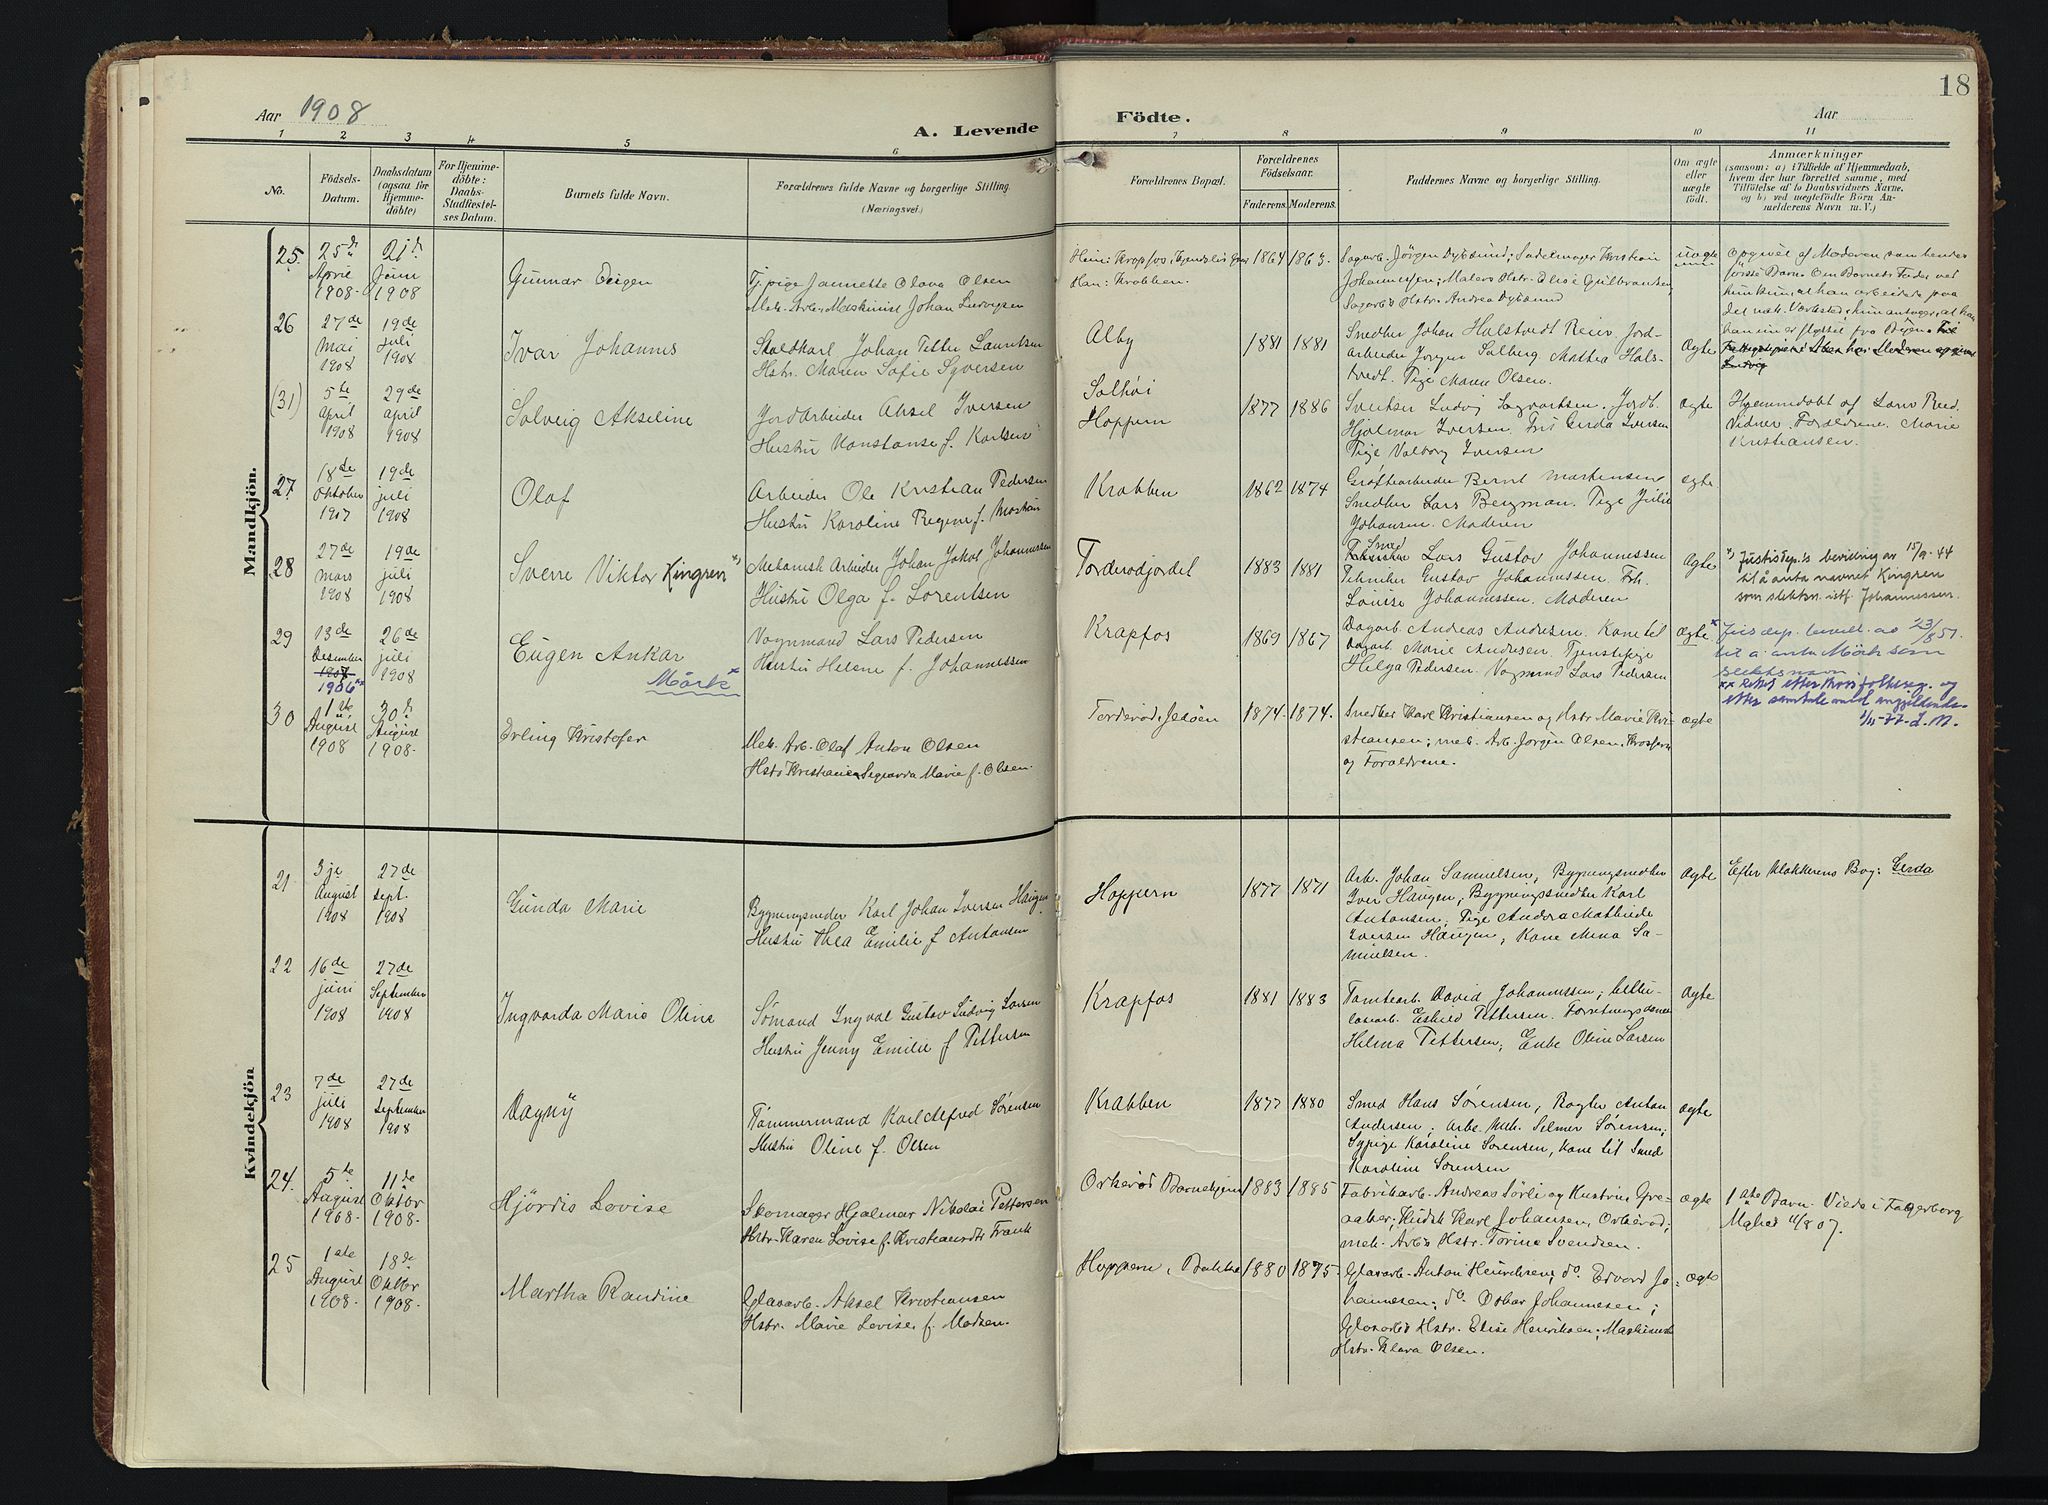 18
Aar 1908
A. Levende
Födte.
Aar
1 2 3 4 5 6 7 8 9 10 11
No.
Födsels-Datum.
Daabsdatum (ogsaa for Hjemme-döbte)
For Hjemme-döbte: Daabs-Stadfæstel-ses Datum.
Barnets fulde Navn.
Forældrenes fulde Navne og borgerlige Stilling.
(Næringsvei.)
Forældrenes Bopæl.
Forældrenes Födselsaar.
Faderens. Moderens.
Faddernes Navne og borgerlige Stilling.
Om ægte eller uægte födt.
Anmærkninger
(saasom: a) i Tilfælde af Hjemmedaab, hvem der har forrettet samme, med Tilföielse af to Daabsvidners Navne, og b) ved uegtefödte Börn An-melderens Navn m. V.)
Mandkjön.
25. 25de April 1908. 21de Juni 1908
Gunnar
Tj.pige Jannette Olava Olsen
Mek. Arb. Maskinist Johan
Krabben.
1864 1863.
Sagarb. Jörgen Dybsund; Sadelmager Kristian
Johannesen; Malers Hstr. Elise Gulbransen
Sagarbs Hstr. Andrea Dybsund
uægte
Opgivet af Moderen som hendes
første Barn. Om Barnets Fader ved
hun kun, at han arbeidede paa
det mek. Værksted; hun antager, at han
26 27de Mai 1908 19de juli 1908
Ivar Johannes
Staldkarl Johan Petter Lauritsen
Hstr. Maren Sofie Syversen
Alby
1881 1881
Snedker Johan Halstvedt Reier Jord-
arbeider Jørgen Solberg. Mathea Hals-
tvedt. Pige Maren Olsen.
Ægte
(31) 5te April 1908 29de april 1908
Solveig Akseline
Jordarbeider Aksel Iversen
Hustru Konstanse f. Karlsen
Solhøi
Hoppern
1877 1886
Ludvig Jordb.
Hjalmar Iversen. Frk Gerda Iversen
Pige Valborg Iversen
ægte
Hjemmedøbt af Lars Reid.
Vidner. Forældrene. Marie
Kristiansen.
27. 18de Oktober 1907 19de juli 1908
Olaf
Arbeider Ole Kristian Pedersen
Hustru Karoline Regine f.
Krabben
1862 1874
Grøftearbeider Bernt Martensen
Snedker Lars Bergman. Pige Julie
Johansen. Moderen
ægte
28 27de Mars 1908 19de juli 1908
Sverre Viktor Kingren *)
Mekanisk Arbeider Johan Jakob Johannessen
Hustru Olga f. Lorentsen
Torderødjordet
1883 1881
Smed Lars Gustav Johannessen
Tekniker Gustav Johannessen. Frk.
Louise Johannessen. Moderen
Ægte
*) Justisdep.'s bevilling av 15/9-44
til å anta navnet Kingren
som slektsn. istf. Johannessen.
29 13de Desember 1907 1906** 26de juli 1908
Eugen Ankar
Mørk *
Vognmand Lars Pedersen
Hustru Helene f. Johannessen
Krapfos
1869 1867
Dagarb. Andreas Andresen. Kone til
Dagarb. Marie Andresen. Tjenstepige
Helga Pedersen. Vognmand Lars Pedersen
ægte
* Jus. dep. bevill. av 23/8 51.
til å anta Mørk som
slektsnavn
** Rettet etter folkereg. og
etter samtale med
1/11-77. L.M.
30 1ste August 1908 30te August 1908.
Erling Kristofer
Mek. Arb. Olaf Anton Olsen
Marie f. Olsen.
Torderød, Jeløen
1874. 1874.
Snedker Karl Kristiansen og Hstr. Marie Kri-
stiansen; mek. Arb. Jørgen Olsen, Krosser
og Forældrene.
ægte
Kvindekjön
21 3je August 1908 27de sept. 1908
Gunda Marie
Bygningsneder Karl Johan Iversen Haugen
Hustru Thea Emilie f Antonsen
Hoppern
1877 1871
Arb. Johan Samuelsen, Bygningsnedker
Iver Haugen, Bygningsnedker Karl
Antonsen. Pige Andrea Mathilde
Iversen Haugen, Kone Mina Sa-
muelsen.
Ægte
Efter Klokkerens Bog: Gerda
22 16de juni 1908 27de September 1908
Ingvarda Marie Oline
Sømand Ingval Gustav Ludvig Larsen
Hustru Jenny Emilie f Pettersen
Krapfos
1881 1883
Tomtearb. David Johannessen; cellu-
losearb. Eskild Pettersen.
Helma Pettersen; Enke Oline Larsen
Ægte
23 7de juli 1908 27de September 1908
Dagny
Tømmermand Karl Alfred Sørensen
Hustru Oline f. Olsen
Krabben
1877 1880
Smed Hans Sørensen, Bagler Anton
Andersen; Arb. Mek. Selmer Sørensen;
Sypige Karoline Sørensen, Kone til Smed
Karoline Sørensen
Ægte
24. 5te August 1908 11de Oktober 1908.
Hjørdis Lovise
Skomager Hjalmar Nikolai Pettersen
Hstr. Karen Lovise f. Kristiansdtr Frank
Orkerød Barnehjem
1883 1885
Fabrikarb. Andreas Sörli og Hustru
Karl Johansen, Orkerød;
mek. Arbs Hstr. Torine Svendsen.
ægte
1ste Barn. Viede i Fagerborg
Mghed 11/8 07.
25 1ste August 1908. 18de Oktbr 1908.
Martha Randine
Glasarb. Aksel Kristiansen
Hstr. Marie Lovise f. Madsen.
Hoppern, Bakke
1880 1875.
Glasarb. Anton Henriksen; do. Edvard Jo-
hannesen; do. Oskar Johannesen;
Glasarbs Hstr. Elise Henriksen; Maskinists
Hstr. Klara Olsen.
ægte